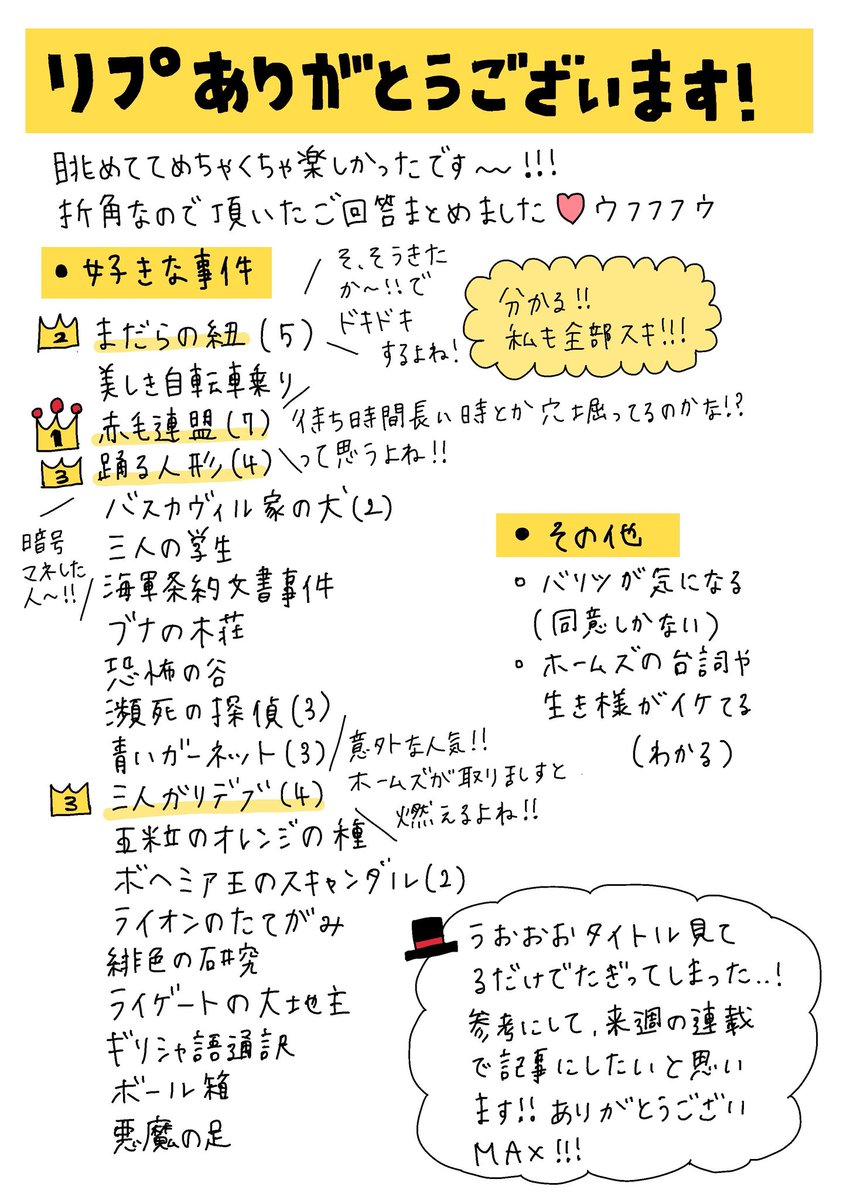 リプありがとうございます!
眺めててめちゃくちゃ楽しかったです〜!!!
折角なので頂いたご回答まとめました♥ウフフフウ
• 好きな事件
そ、そうきた
か〜!!で
ドキドキ
するよね!
分かる!!
私も全部スキ!!!
2 まだらの紐(5)
美しき自転車乗り
1 赤毛連盟(7)
待ち時間長い時とか穴堀ってるのかな!?
って思うよね!!
3 踊る人形(4)
バスカヴィル家の犬(2)
暗号
マネした
人〜!!
三人の学生
海軍条約文書事件
ブナの木荘
恐怖の谷
瀕死の探偵(3)
青いガーネット(3)
意外な人気!!
ホームズが取り乱すと
燃えるよね!!
3 三人ガリデブ(4)
五粒のオレンジの種
ボヘミア王のスキャンダル(2)
ライオンのたてがみ
緋色の研究
ライゲートの大地主
ギリシャ語通訳
ボール箱
悪魔の足
• その他
○ バリツが気になる
(同意しかない)
○ ホームズの台詞や
生き様がイケてる
(わかる)
うおおおタイトル見て
るだけでたぎってしまった..!
参考にして、来週の連載
で記事にしたいと思い
ます!!ありがとうござい
MAX!!!